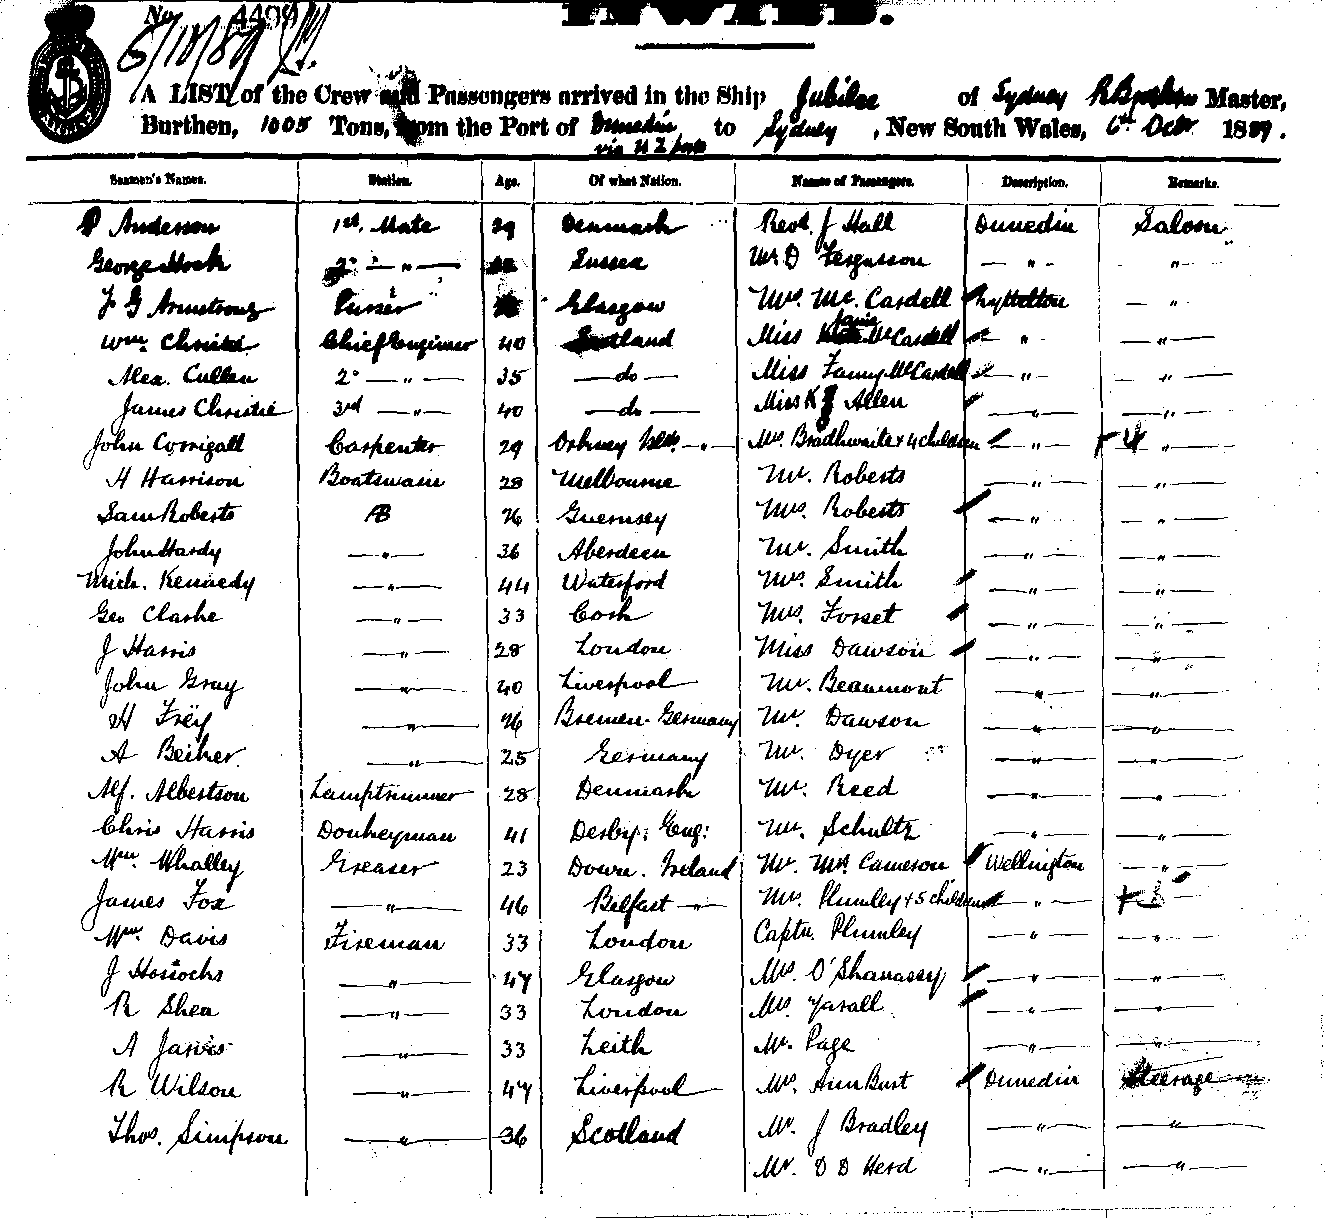 No. 4409
6/10/89
INWARD.
A LIST of the Crew and Passengers arrived in the Ship Jubilee of Sydney Master,
Burthen, 1005 Tons, from the Port of Dunedin to Sydney, New South Wales, 6th Octr 1889.
via N Z ports
Seamen's Names. Station. Age. Of what Nation. Names of Passengers. Description. Remarks.
P Anderson 1st Mate 29 Denmark Revd. J Hall Dunedin Saloon
George Hook 2d — " — Sussex Mr D Fergusson — " — "
J G Armstrong Purser Glasgow Mrs. Mc. Cardell Lyttelton — "
Wm. Christie Chief Engineer 40 Scotland Miss Janie McCardell " — " —
Alex. Cullen 2d — " — 35 — do — Miss Fanny McCardell — " — — " —
James Christie 3rd — " — 40 — do — Miss K J Allen — " — — " —
John Corrigall Carpenter 29 Orkney Isles. — " — Mrs. Bradhwaite + 4 children — " — + 4 "
H Harrison Boatswain 28 Melbourne Mr. Roberts — " — — " —
Sam Roberts AB 26 Guernsey Mrs. Roberts — " — — " —
John Hardy — " — 36 Aberdeen Mr. Smith — " — — " —
Mich. Kennedy — " — 44 Waterford Mrs. Smith — " — — " —
Geo Clarke — " — 33 Cork Mrs. Forset — " — — " —
J Harris — " — 28 London Miss Dawson — " — — " —
John Gray — " — 40 Liverpool Mr. Beaumont — " — — " —
H Frey — " — 26 Bremen Germany Mr. Dawson — " — — " —
A Beiher — " — 25 Germany Mr. Dyer — " — — " —
Alf. Albertson Lamptrimmer 28 Denmark Mr. Reed — " — — " —
Chris Harris Donkeyman 41 Derby, Eng: Mr. Schultz — " — — " —
Wm. Whalley Greaser 23 Down. Ireland Mr. Mrs. Cameron Wellington — " —
James Fox — " — 46 Belfast — " — Mrs. Plumley + 5 children — " — + 5
Wm. Davis Fireman 33 London Captn. Plumley — " — — " —
J — " — 47 Glasgow Mrs. O'Shanassy — " — — " —
R Shea — " — 33 London Mrs. Yarall — " — — " —
A Jarvis — " — 33 Leith Mr. Page — " — — " —
R Wilson — " — 47 Liverpool Mrs. Ann Bust Dunedin Steerage
Thos. Simpson — " — 36 Scotland Mr. J Bradley — " — — " —
Mr. D D Herd — " — — " —